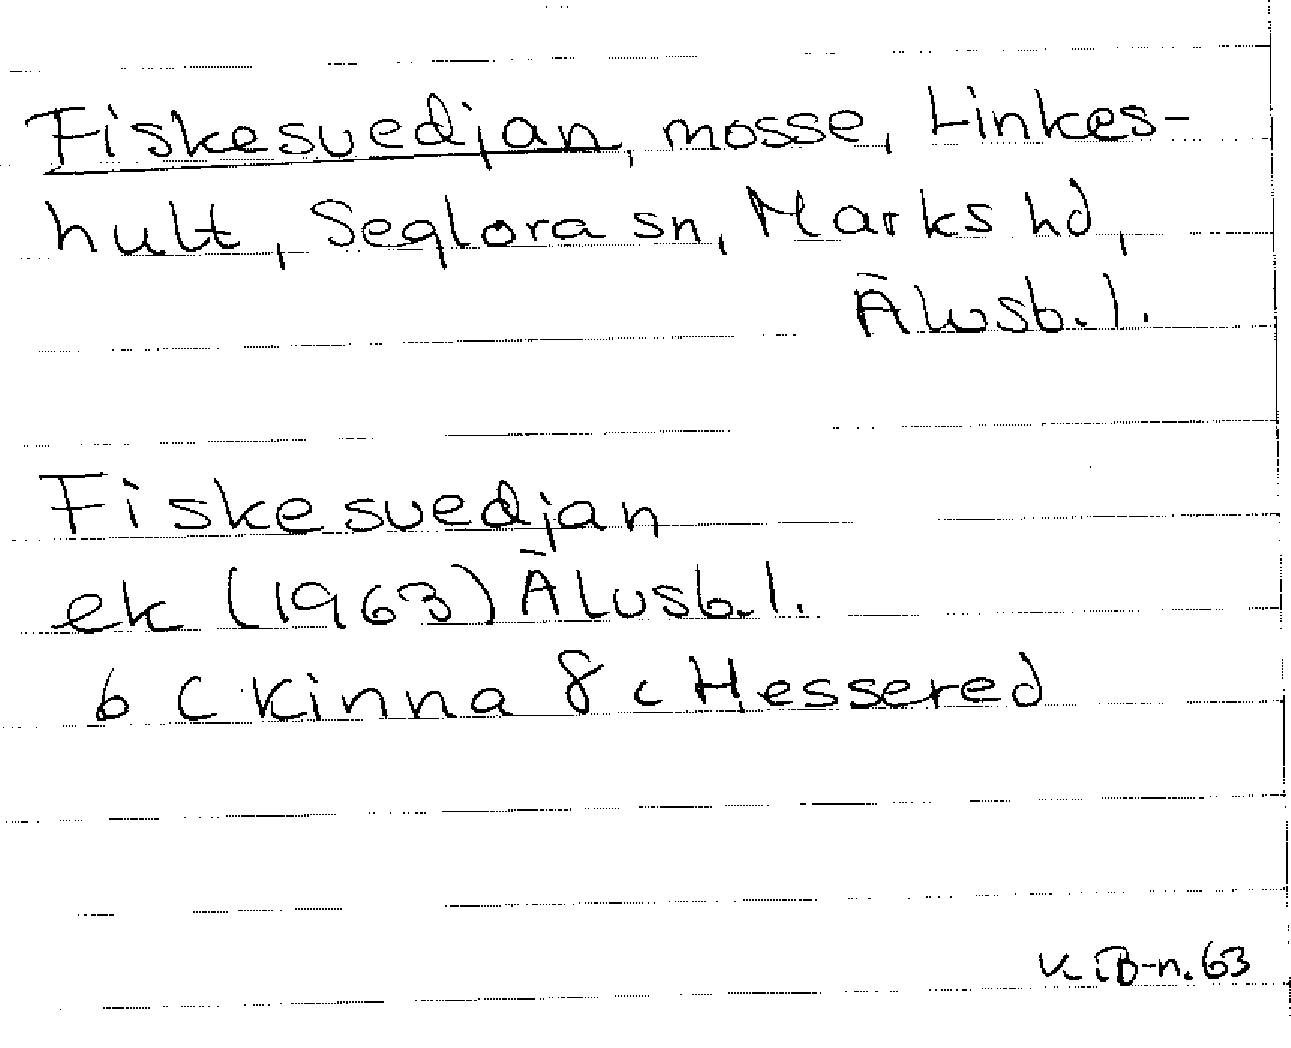 Fiskesvedjan, mosse, Linkes-
hult, Seglora sn, Marks hd,
Älvsb. l.
Fiskesvedjan
ek (1963) Älvsb. l.
6 C Kinna 8 c Hessered
K B-n. 63